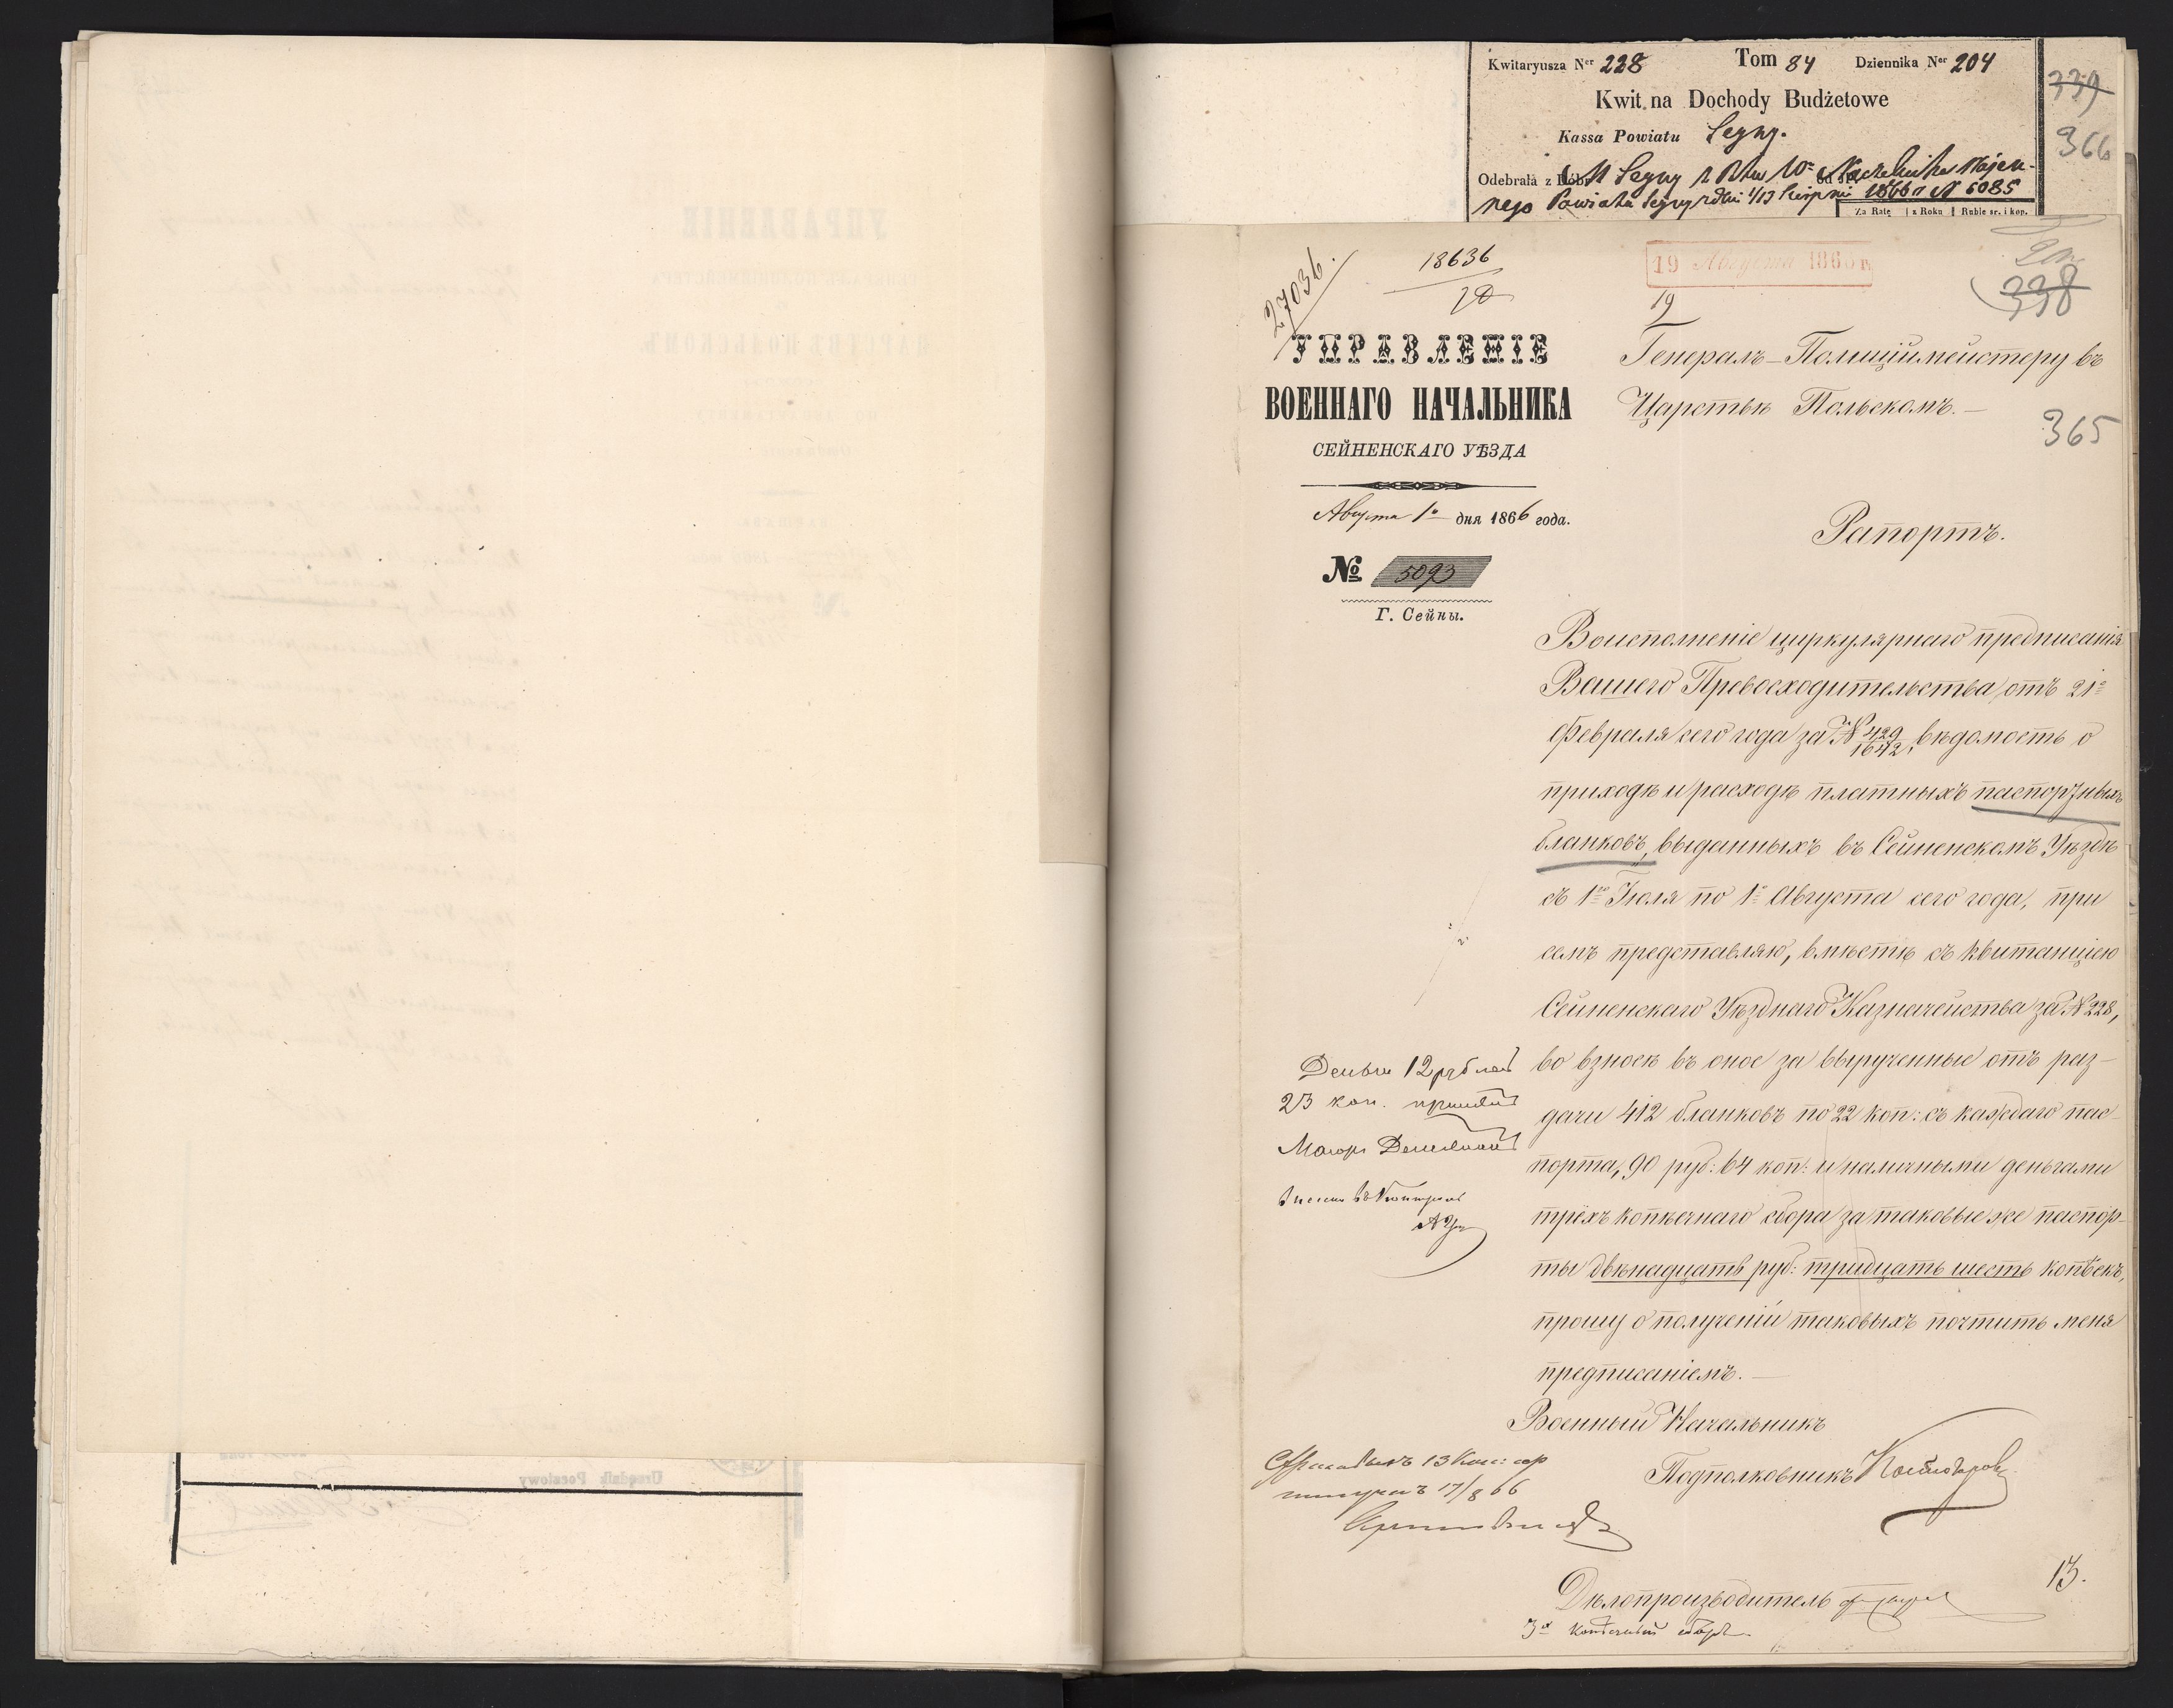 Kwitaryusza Ner 228 Tom 84 Dziennika Ner 204
Kwit na Dochody Budżetowe
Kassa Powiatu Seyny.
Odebrała z Dóbr M Seyny Naczelnika Wojen-
nego Powiatu Seyny z dnia 1/13 Sierpnia 1866 r N 5085
Za Ratę z Roku Ruble sr. i kop.
339
366
27036.
18636
19 Августа 1866 г.
19
338
365
УПРАВЛЕНІЕ
ВОЕННАГО НАЧАЛЬНИКА
СЕЙНЕНСКАГО УѢЗДА
Августа 1о дня 1866 года.
№ 5093
Г. Сейны.
Генералъ-Полиціймейстеру въ
Царствѣ Польскомъ.—
Рапортъ.
Воисполненіе циркулярнаго предписанія
Вашего Превосходительства, отъ 21го
Февраля сего года за № 429/1642, вѣдомость о
приходѣ и расходѣ платныхъ паспортныхъ
бланковъ, выданныхъ въ Сейненскомъ Уѣздѣ
съ 1го Іюля по 1е Августа сего года, при
семъ представляю, вмѣстѣ съ квитанціею
Сейненскаго Уѣзднаго Казначейства за № 228,
во взносѣ въ оное за вырученные отъ раз-
дачи 412 бланковъ по 22 коп: съ каждаго пас-
порта, 90 руб: 64 коп: и наличными деньгами
трехъ копѣечнаго сбора за таковые же паспор-
ты двѣнадцать руб: тридцать шесть копѣекъ,
прошу о полученіи таковыхъ почтить меня
предписаніемъ.—
Деньги 12 рублей
23 коп. принялъ
Маіоръ
Военный Начальникъ
Подполковникъ
13 коп: сер
получилъ 17/8 66
Дѣлопроизводитель
13.
3х копѣечный сборъ.
Urzędnik Pocztowy